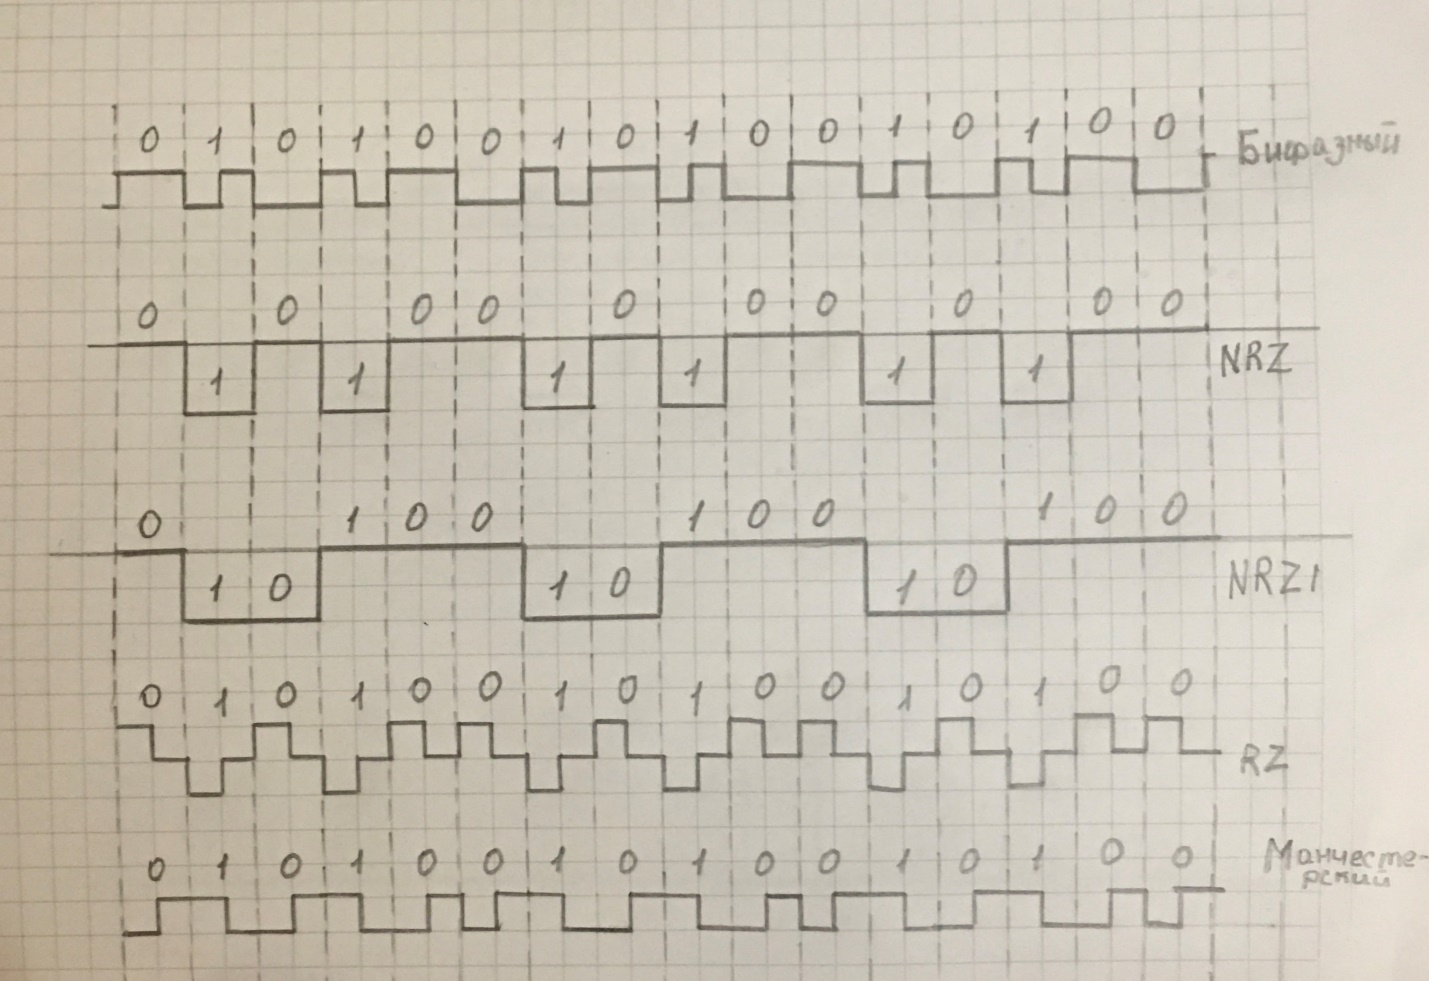 0 1 0 1 0 0 1 0 1 0 0 1 0 1 0 0 Бифазный
0 0 0 0 0 0 0 0 0 0
1 1 1 1 1 1 NRZ
0 1 0 0 1 0 0 1 0 0
1 0 1 0 1 0 NRZI
0 1 0 1 0 0 1 0 1 0 0 1 0 1 0 0
RZ
0 1 0 1 0 0 1 0 1 0 0 1 0 1 0 0 Манчесте-
рский